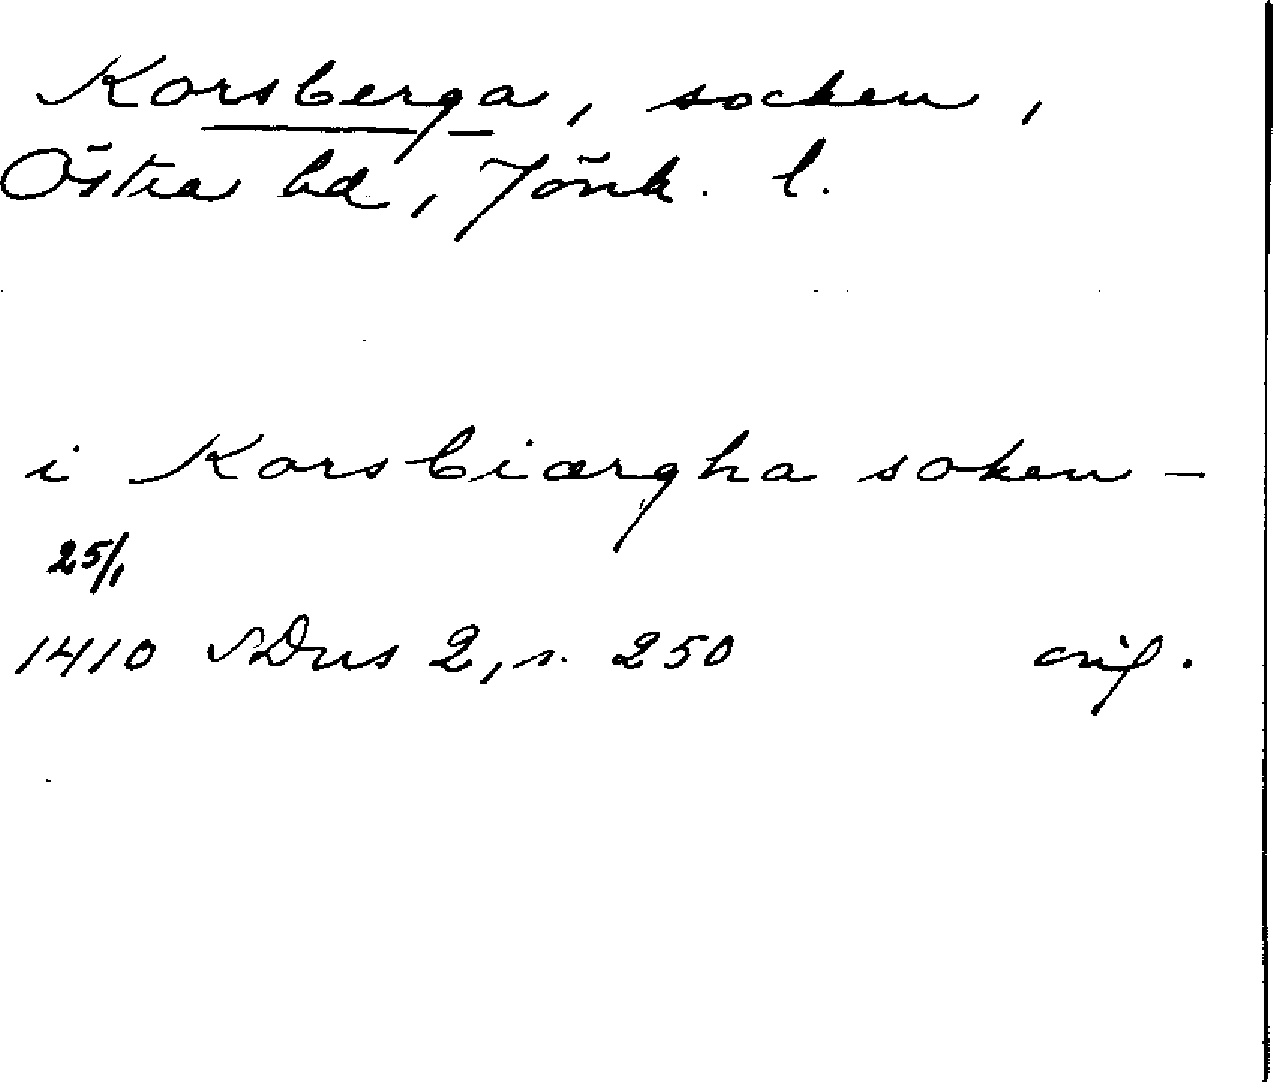 Korsberga, socken,
Östra hd, Jönk. l.
i Korsbiærgha soken -
25/1
1410 SDns 2, s. 250 orig.